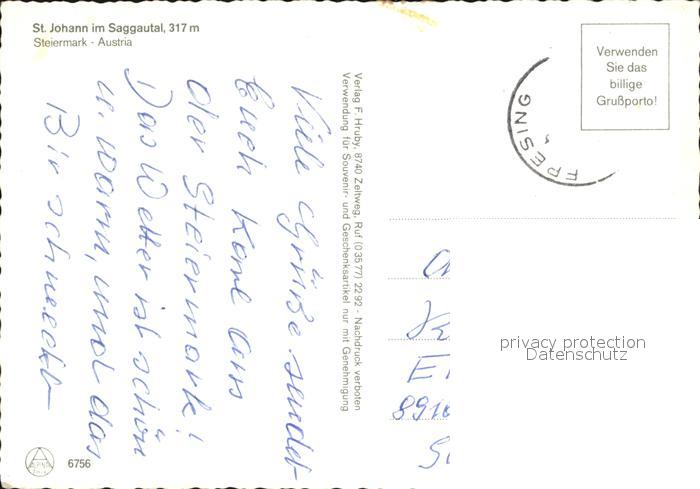 St. Johann im Saggautal, 317 m
Steiermark - Austria
Viele Grüße sendet
Euch Karl aus
der Steiermark!
Das Wetter ist schön
u. warm, und das
Bir schmeckt
Verlag F. Hruby, 8740 Zeltweg, Ruf (0 35 77) 22 92 - Nachdruck verboten
Verwendung für Souvenir- und Geschenksartikel nur mit Genehmigung
FRESING
Verwenden
Sie das
billige
Grußporto!
privacy protection
Datenschutz
6756